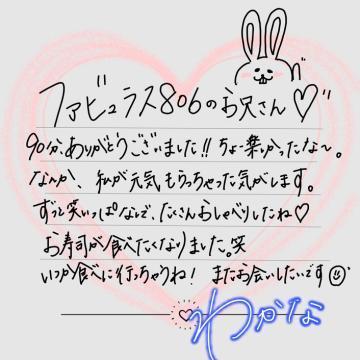 ファビュラス806のお兄さん♡
90分、ありがとうございました!!ちょー楽しかったな〜。
なんか、私が元気もらっちゃった気がします。
ずっと笑いっぱなしで、たくさんおしゃべりしたね♡
お寿司が食べたくなりました。笑
いつか食べに行っちゃうね! またお会いしたいです☺
わかな